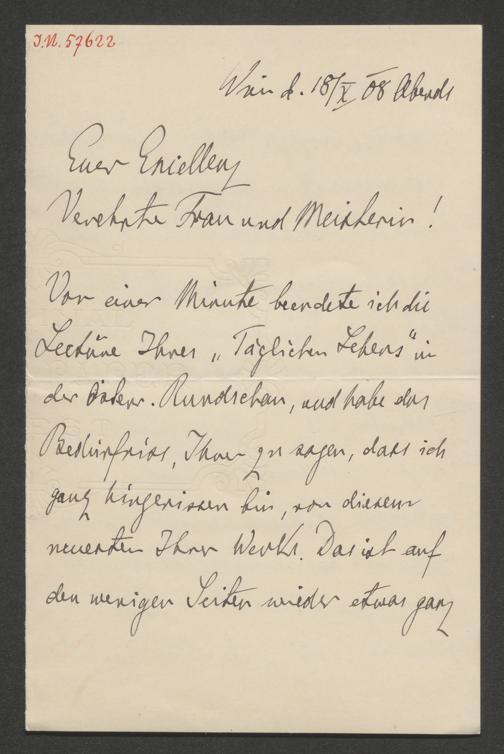 J.N. 57622
Wien d. 18/X 08 Abends
Euer Excellenz
Verehrte Frau und Meisterin!
Vor einer Minute beendete ich die
Lectüre Ihres „Täglichen Lebens" in
der österr. Rundschau, und habe das
Bedürfnis, Ihnen zu sagen, dass ich
ganz hingerissen bin, von diesem
neuesten Ihrer Werke. Das ist auf
den wenigen Seiten wieder etwas ganz